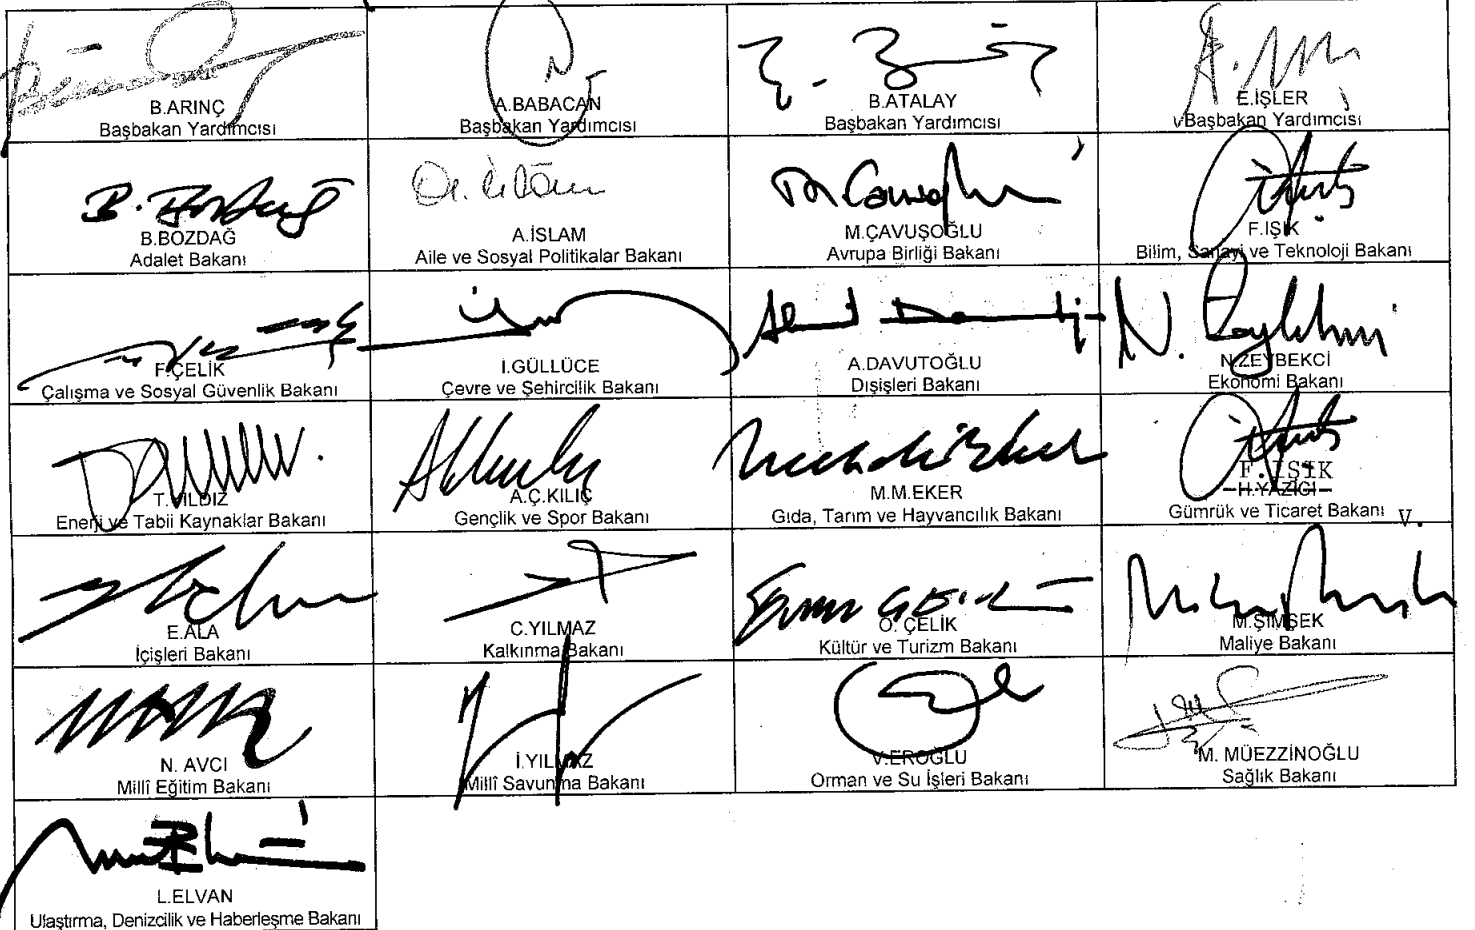 B.ARINÇ
Başbakan Yardımcısı
A.BABACAN
Başbakan Yardımcısı
B.ATALAY
Başbakan Yardımcısı
E.İŞLER
Başbakan Yardımcısı
B.BOZDAĞ
Adalet Bakanı
A.İSLAM
Aile ve Sosyal Politikalar Bakanı
M.ÇAVUŞOĞLU
Avrupa Birliği Bakanı
F.IŞIK
Bilim, Sanayi ve Teknoloji Bakanı
F.ÇELİK
Çalışma ve Sosyal Güvenlik Bakanı
İ.GÜLLÜCE
Çevre ve Şehircilik Bakanı
A.DAVUTOĞLU
Dışişleri Bakanı
N.ZEYBEKCİ
Ekonomi Bakanı
T.YILDIZ
Enerji ve Tabii Kaynaklar Bakanı
A.Ç.KILIÇ
Gençlik ve Spor Bakanı
M.M.EKER
Gıda, Tarım ve Hayvancılık Bakanı
F. IŞIK
H.YAZICI
Gümrük ve Ticaret Bakanı V.
E.ALA
İçişleri Bakanı
C.YILMAZ
Kalkınma Bakanı
Ö. ÇELİK
Kültür ve Turizm Bakanı
M.ŞİMŞEK
Maliye Bakanı
N. AVCI
Millî Eğitim Bakanı
İ.YILMAZ
Millî Savunma Bakanı
V.EROĞLU
Orman ve Su İşleri Bakanı
M. MÜEZZİNOĞLU
Sağlık Bakanı
L.ELVAN
Ulaştırma, Denizcilik ve Haberleşme Bakanı